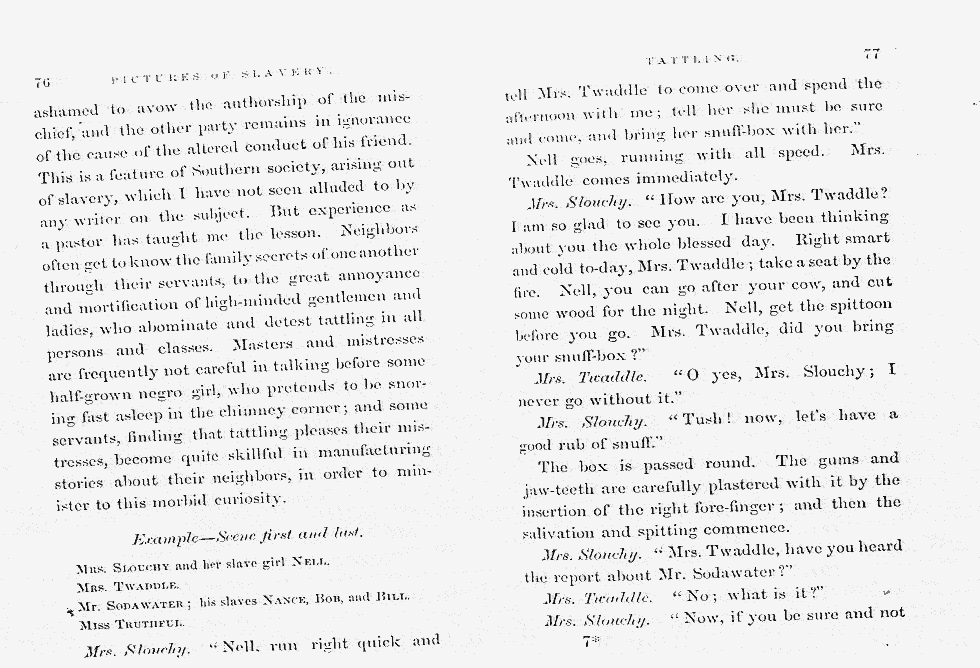 76 PICTURES OF SLAVERY.
ashamed to avow the authorship of the mis-
chief, and the other party remains in ignorance
of the cause of the altered conduct of his friend.
This is a feature of Southern society, arising out
of slavery, which I have not seen alluded to by
any writer on the subject. But experience as
a pastor has taught me the lesson. Neighbors
often get to know the family secrets of one another
through their servants, to the great annoyance
and mortification of high-minded gentlemen and
ladies, who abominate and detest tattling in all
persons and classes. Masters and mistresses
are frequently not careful in talking before some
half-grown negro girl, who pretends to be snor-
ing fast asleep in the chimney corner; and some
servants, finding that tattling pleases their mis-
tresses, become quite skillful in manufacturing
stories about their neighbors, in order to min-
ister to this morbid curiosity.
Example—Scene first and last.
Mrs. Slouchy and her slave girl Nell.
Mrs. Twaddle.
Mr. Sodawater; his slaves Nance, Bob, and Bill.
Miss Truthful.
Mrs. Slouchy. "Nell, run right quick and
TATTLING. 77
tell Mrs. Twaddle to come over and spend the
afternoon with me; tell her she must be sure
and come, and bring her snuff-box with her."
Nell goes, running with all speed. Mrs.
Twaddle comes immediately.
Mrs. Slouchy. "How are you, Mrs. Twaddle?
I am so glad to see you. I have been thinking
about you the whole blessed day. Right smart
and cold to-day, Mrs. Twaddle; take a seat by the
fire. Nell, you can go after your cow, and cut
some wood for the night. Nell, get the spittoon
before you go. Mrs. Twaddle, did you bring
your snuff-box?"
Mrs. Twaddle. "O yes, Mrs. Slouchy; I
never go without it."
Mrs. Slouchy. "Tush! now, let's have a
good rub of snuff."
The box is passed round. The gums and
jaw-teeth are carefully plastered with it by the
insertion of the right fore-finger; and then the
salivation and spitting commence.
Mrs. Slouchy. "Mrs. Twaddle, have you heard
the report about Mr. Sodawater?"
Mrs. Twaddle. "No; what is it?"
Mrs. Slouchy. "Now, if you be sure and not
7*